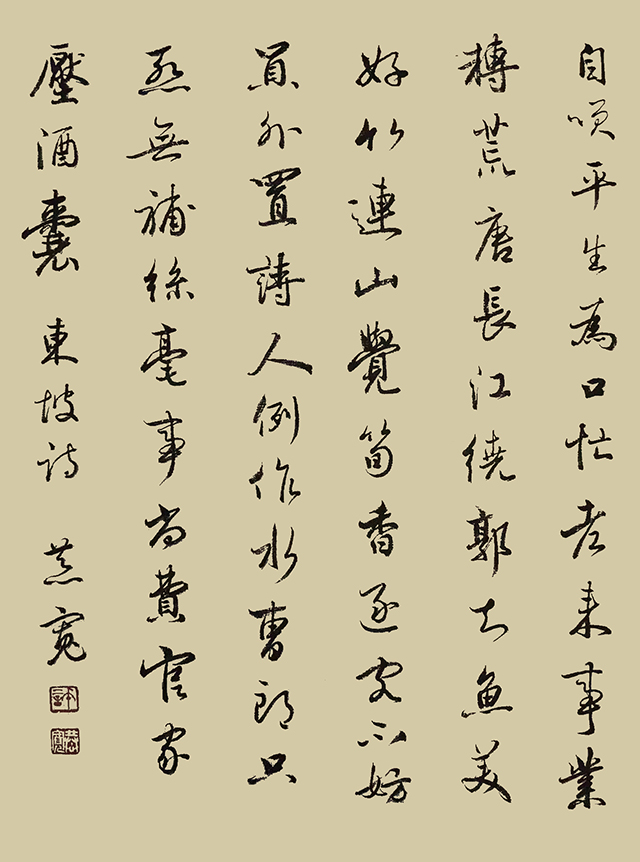 自咲平生為口忙老来事業
轉荒唐長江繞郭知魚美
好竹連山覺筍香逐客不妨
員外置詩人例作水曹郎只
慙無補絲毫事尚費官家
壓酒囊 東坡詩 寬